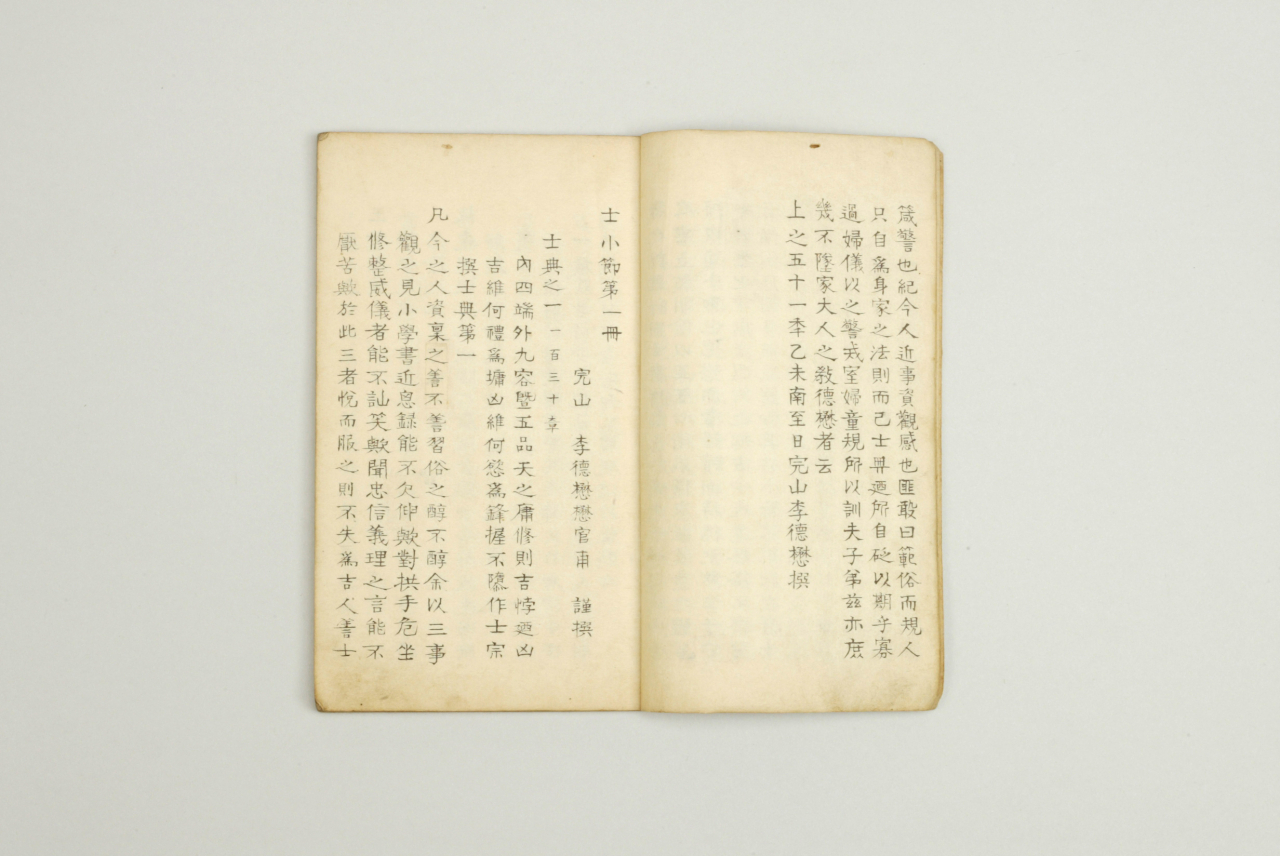 箴警也紀今人近事資觀感也匪敢曰範俗而規人
只自爲身家之法則而已士典迺所自砭以期乎寡
過婦儀以之警戒室婦童規所以訓夫子弟兹亦庶
幾不墜家大人之敎德懋者云
上之五十一秊乙未南至日完山李德懋撰
士小節第一冊
完山 李德懋懋官甫 謹撰
士典之一 一百三十章
內四端外九容曁五品天之庸修則吉悖迺凶
吉維何禮爲墉凶維何慾爲鋒握不隳作士宗
撰士典第一
凡今之人資稟之善不善習俗之醇不醇余以三事
觀之見小學書近思録能不欠伸歟對拱手危坐
修整威儀者能不訕笑歟聞忠信義理之言能不
厭苦歟於此三者悅而服之則不失爲吉人善士